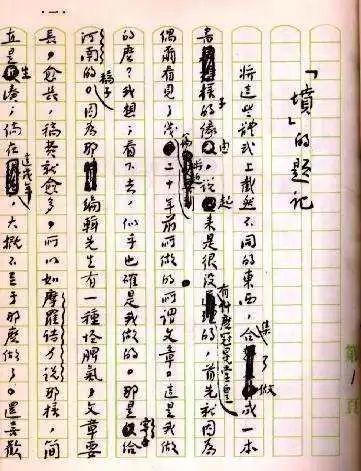 「墳」的題記
將這些體式上截然不同的東西,集合了做成一本
書樣子的緣由,說起來是很沒有什麼冠冕堂皇的,首先就因為
偶爾看見了幾篇將近二十年前所做的所謂文章。這是我做
的麼?我想;看下去,似乎也確是我做的。那是寄給
河南的稿子。因為那編輯先生有一種怪脾氣,文章要
長,愈長,稿費就愈多,所以如摩羅詩力說那樣,簡
直是生湊;倘在這幾年,大概不至于那麼做了。還喜歡